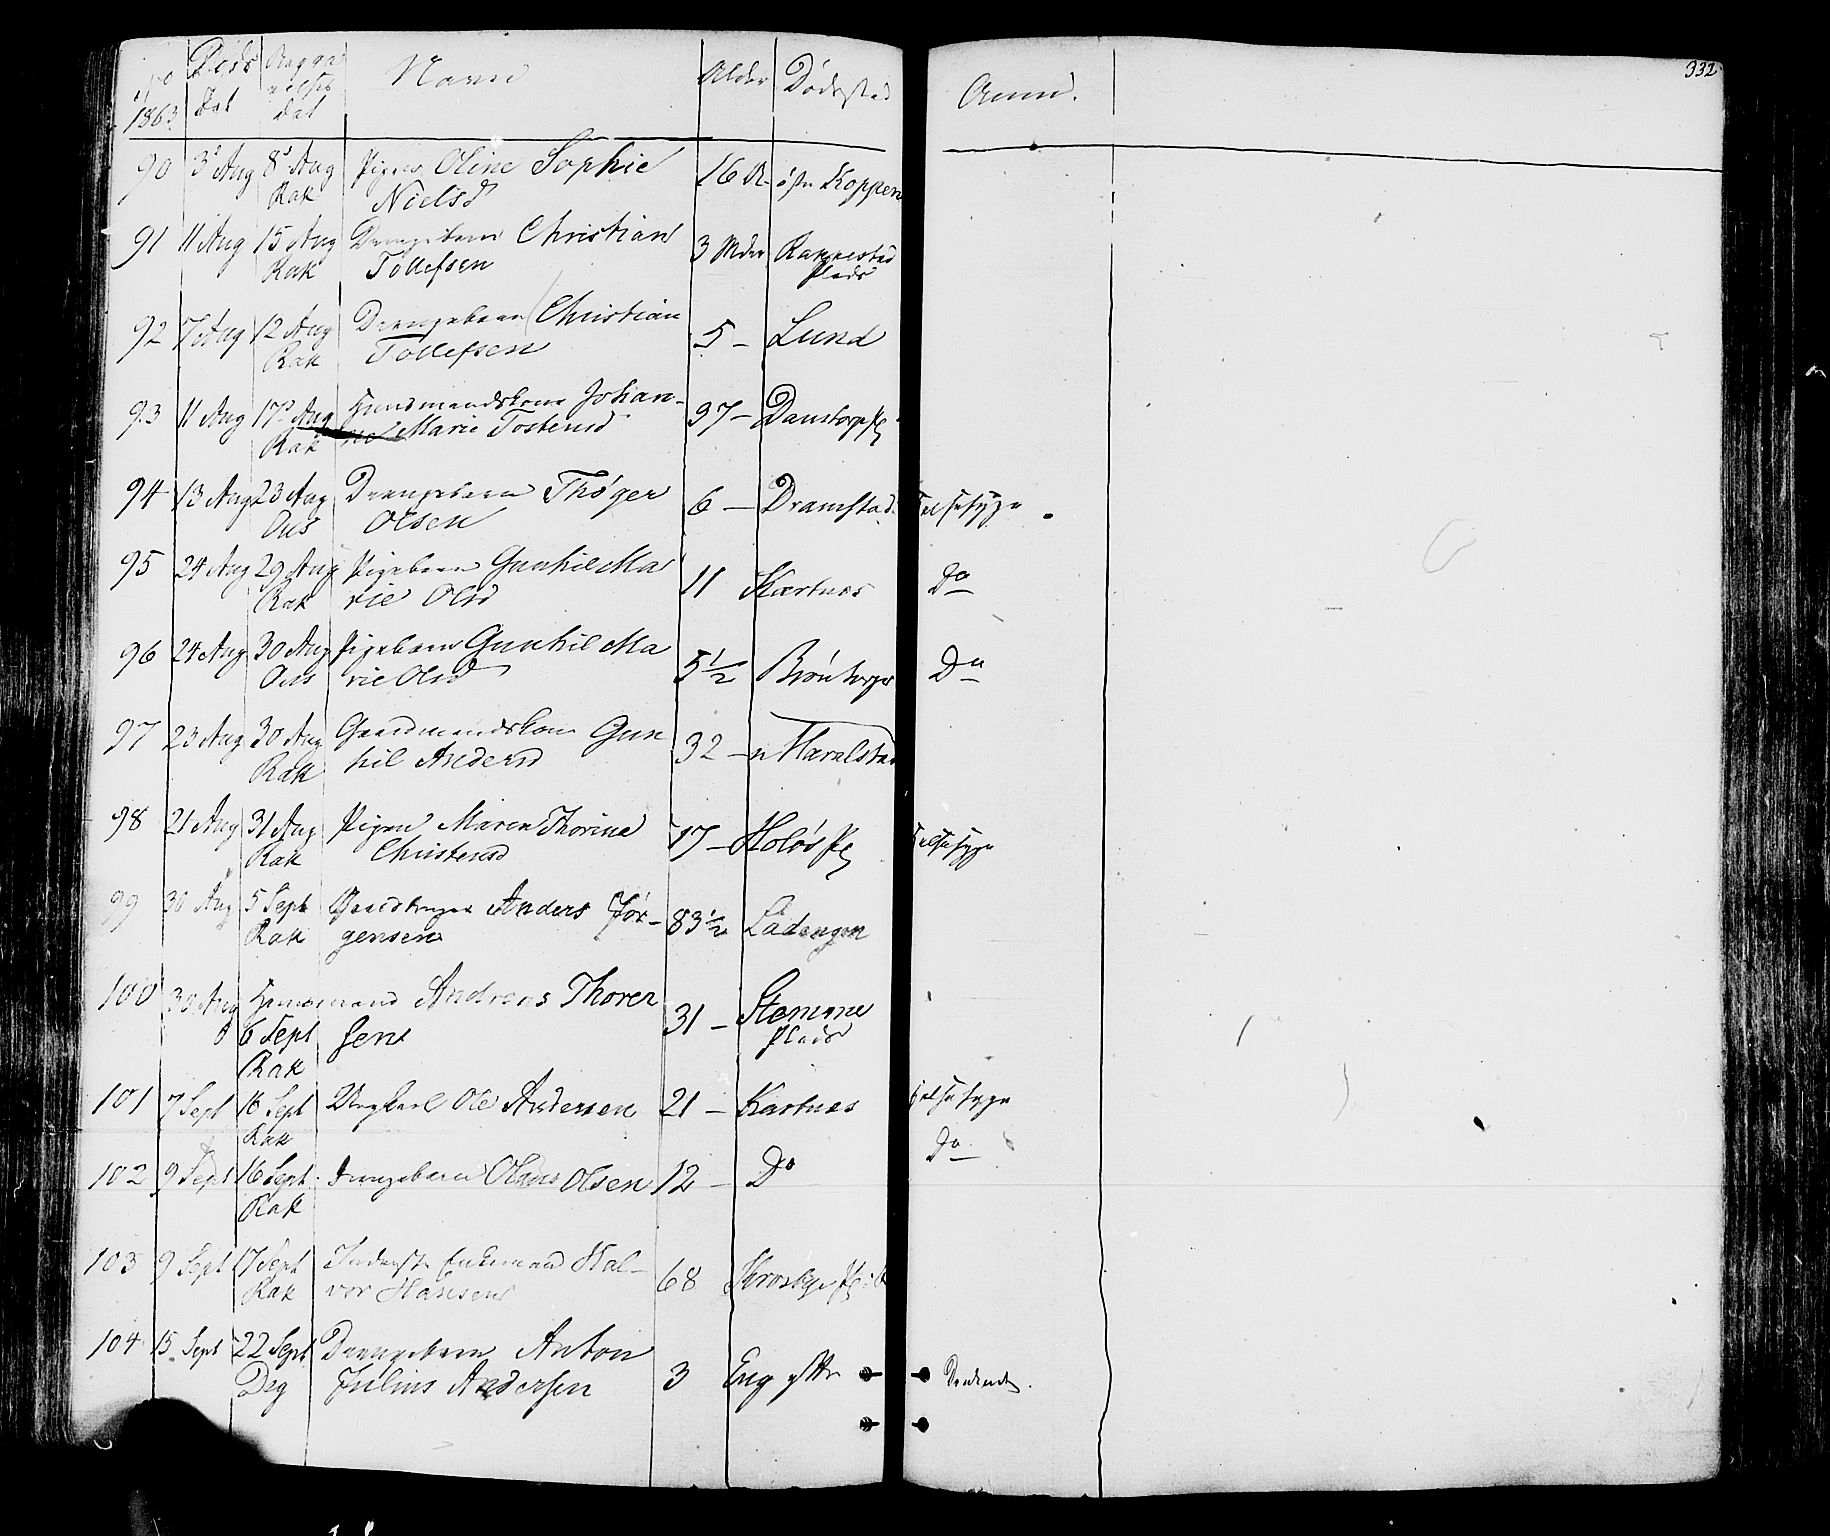 332
1863
Døds Dat
Begravelses dat
Navn
Alder
Dødsted
Anm.
90 3 Aug 8 Aug Pigen Oline Sophie 16 østr Koppen
Rak Nielsd
91 11 Aug 15 Aug Drengebarn Christian 3 Mdr Rakkestad
Rak Tollefsen Plads
92 7 Aug 12 Aug Drengebarn Christian 5 Lund
Rak Tollefsen
93 11 Aug 17 Aug Huusmandskone Johan-
Rak ne Marie Tostensd 37 -
94 13 Aug 23 Aug Drengebarn Thøger 6 - Dramstad
Ous Olsen
95 24 Aug 29 Aug Pigebarn Gunhil Ma 11 Kastnes Do
Rak rie Olsd
96 24 Aug 30 Aug Pigebarn Gunhil Ma 5½ Do
Ous rie Olsd
97 23 Aug 30 Aug Gaardmandskone Gun 32 - n Haralstad
Rak hil Andersd
98 21 Aug 31 Aug Pigen Maren Thorine 17 - Holøs Pl
Rak Christensd
99 30 Aug 5 Sept Anders Jør- 83½ Ladengen
Rak gensen
100 30 Aug Huusmand Andreas Thorer 31 - Stemme
6 Sept sen Plads
Rak
101 7 Sept 16 Sept Ungkarl Ole Andersen 21 - Kastnes
Rak
102 9 Sept 16 Sept Drengebarn Olaus Olsen 12 - Do Do
Rak
103 9 Sept 17 Sept Inderst Enkemand Hal- 68
Rak vor Hansen
104 15 Sept 22 Sept Drengebarn Anton 3 Eng østr
Deg Julius Andersen